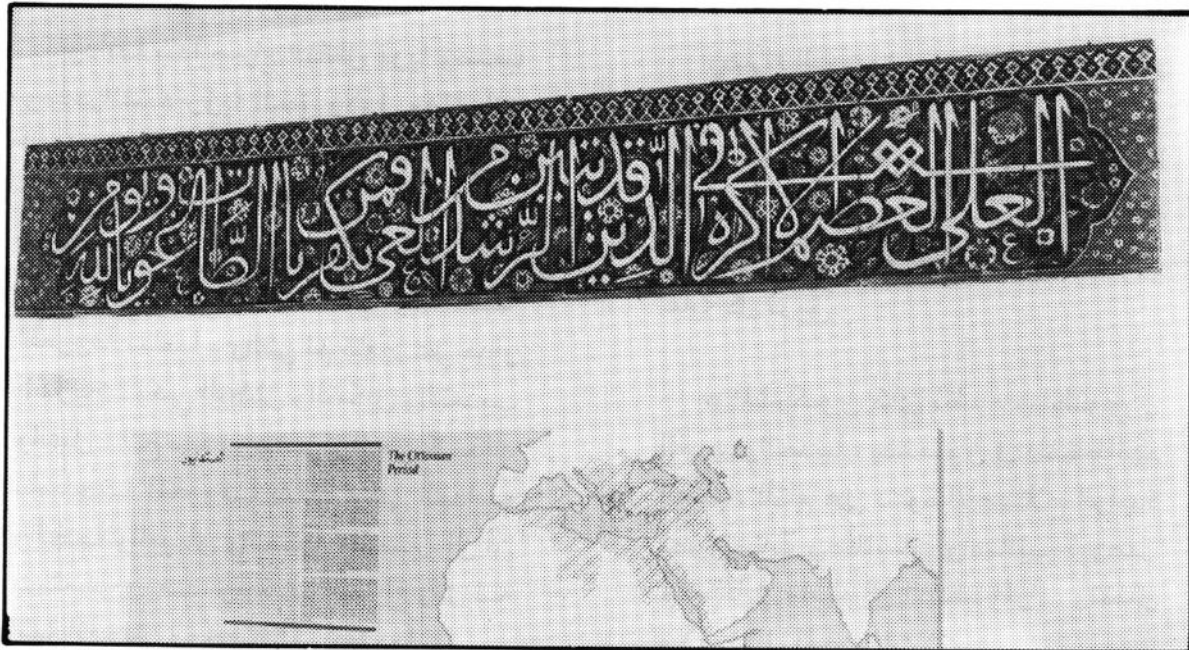 العلي العظيم لا اكراه في الدين قد تبين الرشد من الغي فمن يكفر بالطاغوت ويؤمن بالله
The Ottoman
Period